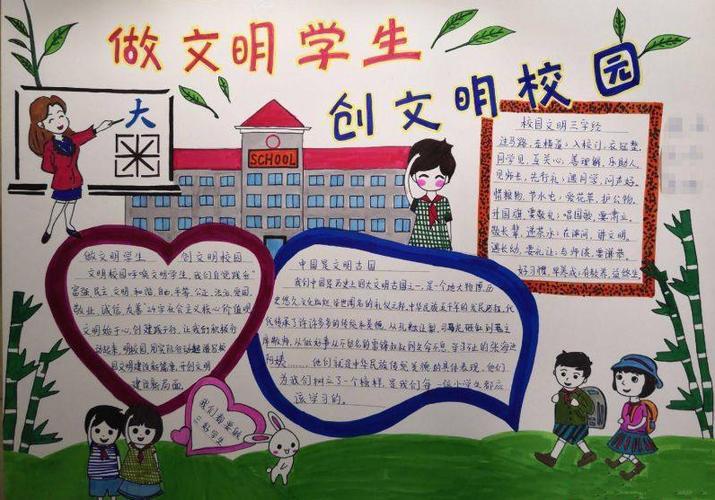 做文明学生
创文明校园
大
米
SCHOOL
校园文明三字经
过马路,走横道;入校门,衣冠整,
同学见,互关心,善理解,乐助人,
见师长,先行礼;遇同学,问声好。
惜粮物,节水电;爱花草,护公物,
升国旗,要敬礼;唱国歌,要肃立。
敬长辈,递茶水;在课间,讲文明。
遇长幼,要礼让;与师误,要谦恭。
好习惯,早养成;有教养,益终生
做文明学生 创文明校园
文明校园呼唤文明学生,我们自觉践行"
富强、民主、文明、和谐、自由、平等、公正、法治、爱国、
敬业、诚信、友善"24字社会主义核心价值观
文明始于心,创建践于行,让我们积极行
动起来,明校园,用实际行动
文明建设新
建设新局面。
中国是文明古国
我们中国是历史上四大文明古国之一,是个地大物博,历
史悠久,文化灿烂,举世闻名的礼仪之邦,中华民族五千年的发展历程,代
代传承了许许多多的传统和美德。从孔融让梨、司马光砸缸到君主
从做好事从不留名的雷锋叔叔到生命不息、学习不止的张海迪
阿姨……他们就是中华民族传统美德的具体表现,他们
为我们树立了一个榜样,是我们每一位小学生都应
该学习的。
我们都要做
三好学生